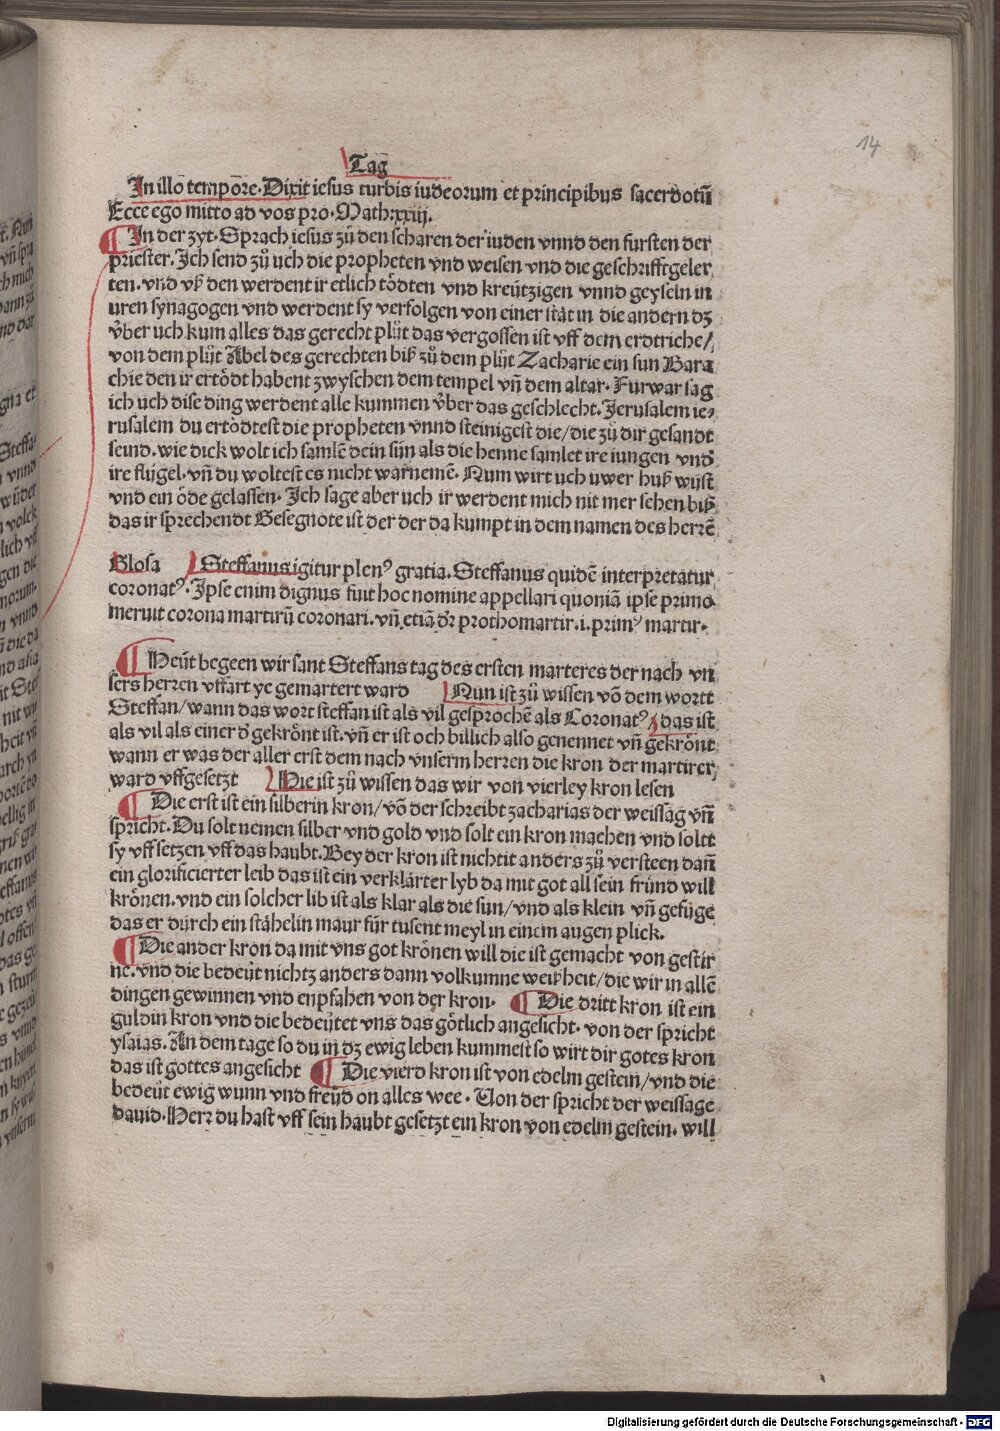 14
Tag
In illo tempore. Dixit iesus turbis iudeorum et principibus sacerdotū
Ecce ego mitto ad vos pro. Math: xxiij.
¶ In der zyt. Sprach iesus zů den scharen der iuden vnnd den fursten der
priester. Ich send zů uch die propheten vnd weisen vnd die geschrifftgeler
ten. vnd vß den werdent ir etlich tödten vnd kreützigen vnnd geyseln in
uren synagogen vnd werdent sy verfolgen von einer stat in die andern dz
v̈ber uch kum alles das gerecht plůt das vergossen ist vff dem erdtriche/
von dem plůt Abel des gerechten biß zů dem plůt Zacharie ein sun Bara
chie den ir ertödt habent zwyschen dem tempel vñ dem altar. Furwar sag
ich uch dise ding werdent alle kummen v̈ber das geschlecht. Jerusalem ie⸗
rusalem du ertödtest die propheten vnnd steinigest die/die zů dir gesandt
seind. wie dick wolt ich samlē dein sün als die henne samlet ire iungen vnd
ire flügel. vñ du woltest es nicht warnemē. Num wirt uch uwer huß wüst
vnd ein öde gelassen. Ich sage aber uch ir werdent mich nit mer sehen biß
das ir sprechendt Gesegnote ist der der da kumpt in dem namen des herrē
Glosa Steffanus igitur plenꝰ gratia. Steffanus quidē interpretatur
coronatꝰ. Ipse enim dignus fuit hoc nomine appellari quoniā ipse primo
meruit corona martirū coronari. vñ etiā dr̄ prothomartir. i. primꝰ martir.
¶ Heüt begeen wir sant Steffans tag des ersten marteres der nach vn
sers herren vffart ye gemartert ward Nun ist zů wissen vō dem wortt
Steffan/wann das wort steffan ist als vil gesprochē als Coronatꝰ/ das ist
als vil als einer d̄ gekrönt ist. vñ er ist och billich also genennet vñ gekrönt
wann er was der aller erst dem nach vnserm herren die kron der martirer
ward vffgesetzt Hie ist zů wissen das wir von vierley kron lesen
¶ Die erst ist ein silberin kron/vō der schreibt zacharias der weissag vñ
spricht. Du solt nemen silber vnd gold vnd solt ein kron machen vnd soltt
sy vff setzen vff das haubt. Bey der kron ist nichtit anders zů versteen dañ
ein glorificierter leib das ist ein verklärter lyb da mit got all sein fründ will
krönen. vnd ein solcher lib ist als klar als die sun/vnd als klein vñ gefüge
das er durch ein stähelin maur für tusent meyl in einem augen plick.
¶ Die ander kron da mit vns got krönen will die ist gemacht von gestir
ne. vnd die bedeüt nichtz anders dann volkumne weißheit/die wir in allē
dingen gewinnen vnd enpfahen von der kron. ¶ Die dritt kron ist ein
guldin kron vnd die bedeütet vns das götlich angesicht. von der spricht
ysaias. An dem tage so du in dz ewig leben kummest so wirt dir gotes kron
das ist gottes angesicht ¶ Die vierd kron ist von edelm gestein/vnd die
bedeüt ewig wunn vnd freüd on alles wee. Von der spricht der weissage
dauid. Herr du hast vff sein haubt gesetzt ein kron von edelm gestein. will
Digitalisierung gefördert durch die Deutsche Forschungsgemeinschaft - DFG